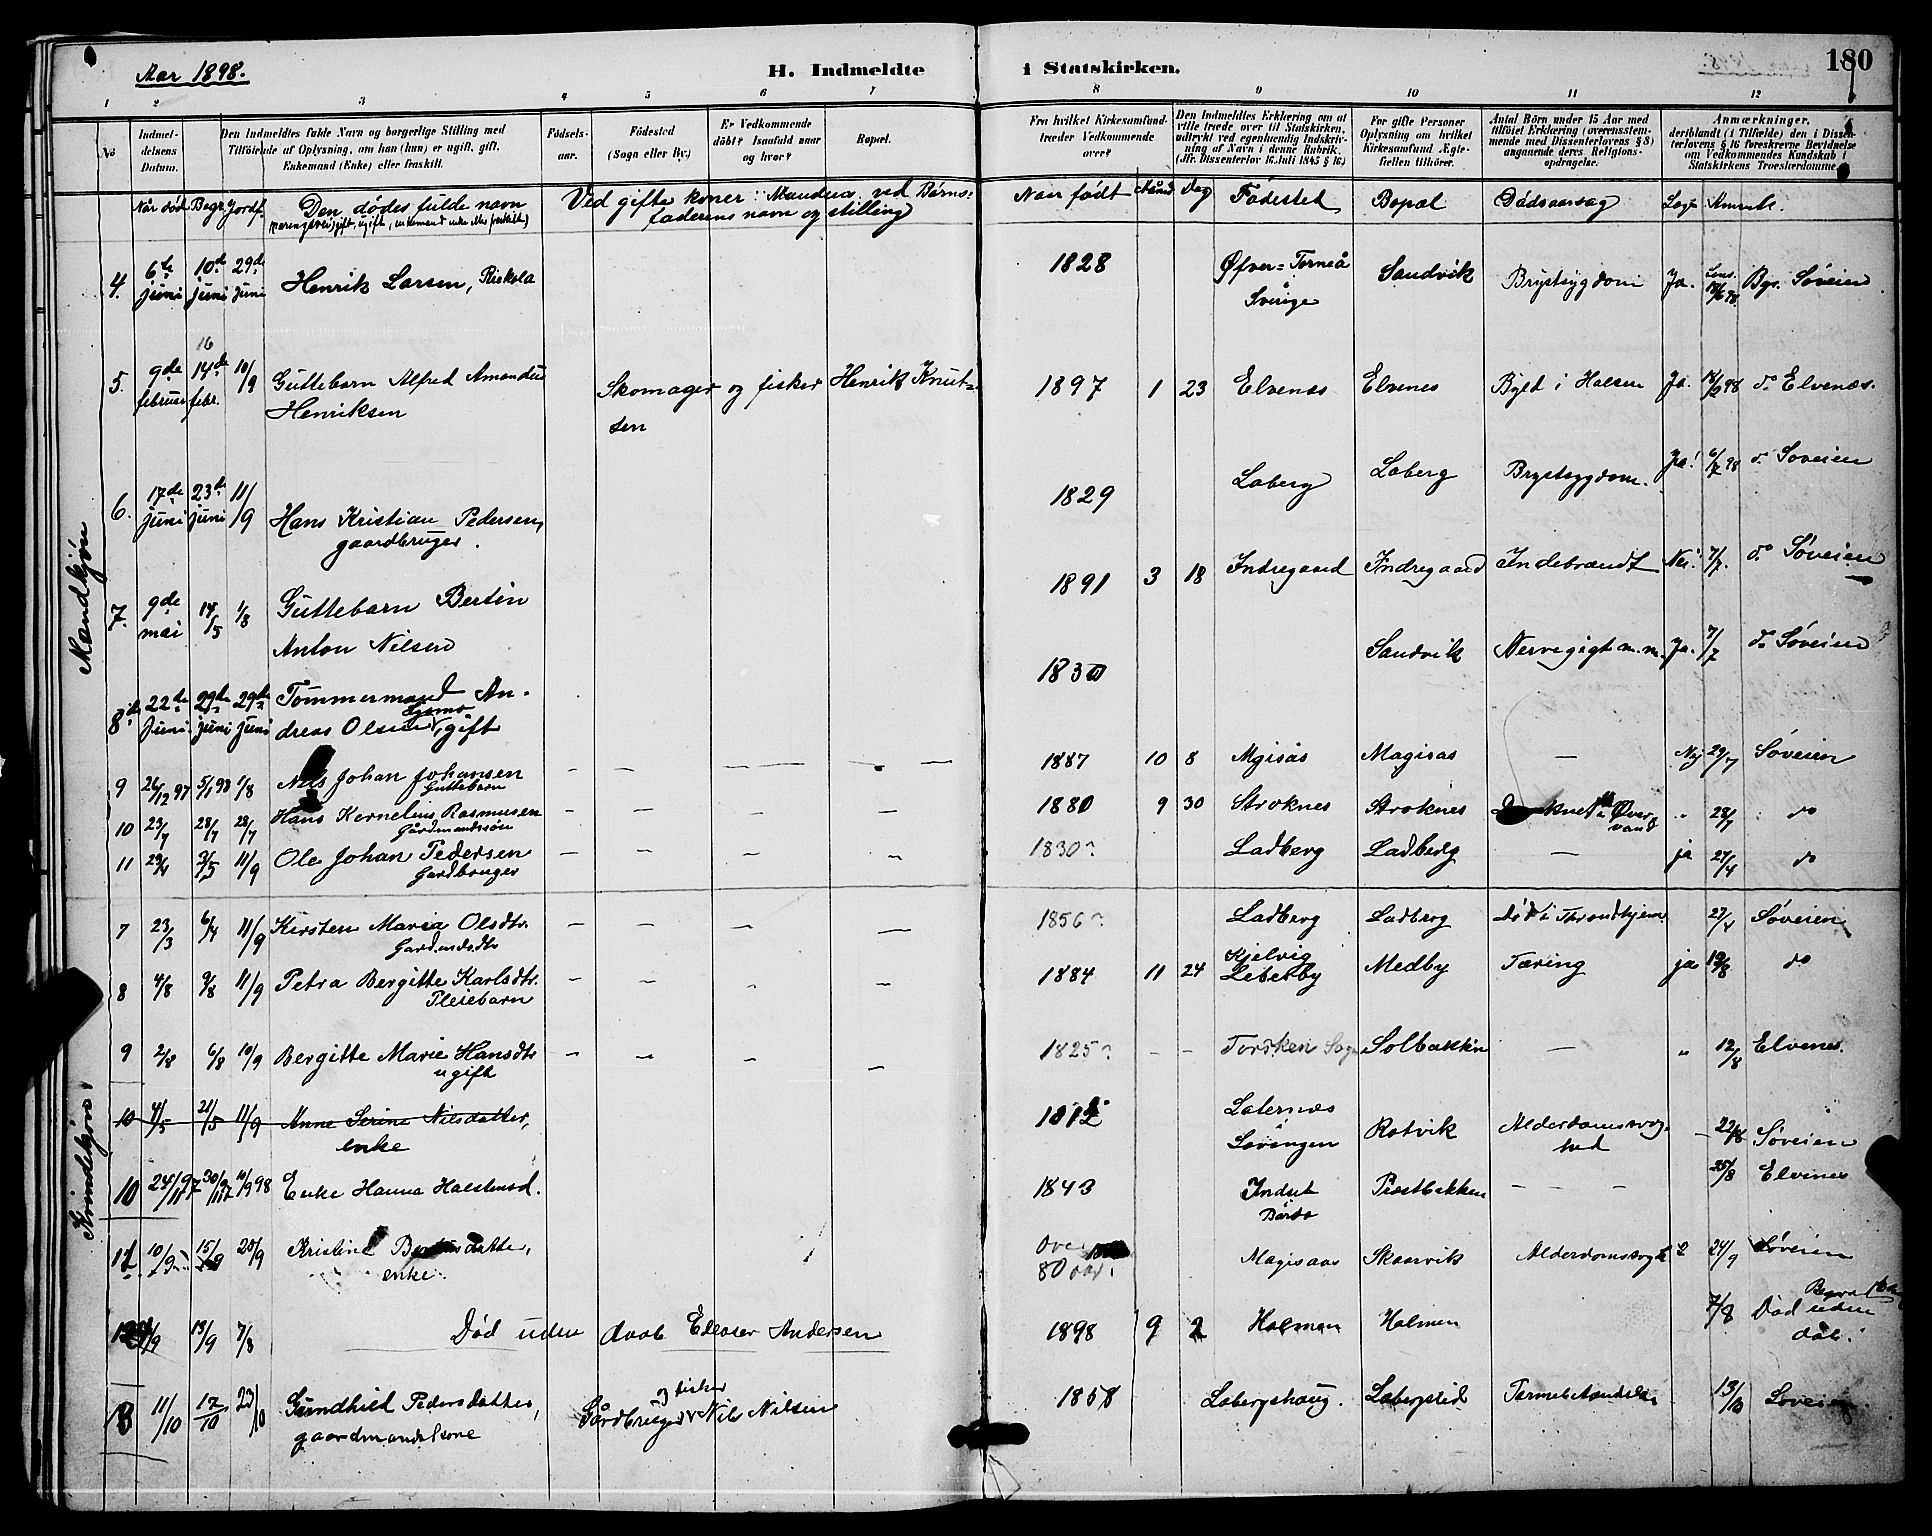 Aar 1898.
H. Indmeldte i Statskirken.
180
1 2 3 4 5 6 7 8 9 10 11 12
No
Indmel-
delsens
Datum.
Den Indmeldtes fulde Navn og borgerlige Stilling med
Tilføiende af Oplysning, om han (hun) er ugift, gift,
Enkemand (Enke) eller fraskilt.
Fødsels-
aar.
Fødested
(Sogn eller By.)
Er Vedkommende
døbt? Isaafald naar
og hvor?
Bopæl.
Fra hvilket Kirkesamfund
træder Vedkommende
over?
Den Indmeldtes Erklæring om at
ville træde over til Statskirken,
udtrykt ved egenhændig Indskriv-
ning af Navn i denne Rubrik.
(Jfr. Dissenterlov 16. Juli 1845 § 16)
For gifte Personer
Oplysning om hvilket
Kirkesamfund Ægte-
fællen tilhører.
Antal Børn under 15 Aar med
tilføiet Erklæring (overensstem-
mende med Dissenterlovens § 8)
angaaende deres Religions-
opdragelse.
Anmærkninger,
deriblandt (i Tilfælde) den i Dissen-
terlovens § 16 foreskrevne Bevidnelse
om Vedkommendes Kundskab i
Statskirkens Troeslærdomme.
Når død Begr. Jordf. Den dødes fulde navn Ved gifte koner: Mandens, ved Børns: Naar født Måned Dag Fødested Bopæl Dødsaarsag Læge Anmrk.
faderens navn og stilling
Mandkjøn
4. 6te juni 10de juni 29de juni Henrik Larsen, Riekola 1828 Øfver=Torneå Sverige Sandvik Brystsygdom Ja. Bgr. Søveien
16
5. 9de februar 14de febr. 10/9 Guttebarn Alfred Amandus Skomager og fisker Henrik Knut= 1897 1 23 Elvenes Elvenes Byld i Halsen Ja. do Elvenæs.
Henriksen sen
6. 17de juni 23de juni 11/9 Hans Kristian Pedersen, 1829 Laberg Laberg Brystsygdom. Ja! do Søveien
gaardbruger.
7. 9de mai 14/5 1/8 Guttebarn Bertin 1891 3 18 Indregaard Indregaard Indebrændt Nei. 7/7. do Søveien
Anton Nilsen
8de 22de Juni 29de juni 29de juni Tømmermand An- 1830 Sandvik Nervegigt m. m. Ja. 7/7 do Søveien
dreas Olsen, gift
9 26/12 97 5/1 98 1/8 Nils Johan Johansen 1887 10 8 Mgisås Magisas — Nej 29/7 Søveien
Guttebarn
10 23/7 28/7 28/7 Hans Kornelius Rasmusen 1880 9 30 Stroknes Stroknes " 28/7 do
Gårdmandssøn
11 29/4 3/5 11/9 Ole Johan Pedersen 1830? Ladberg Ladberg — ja 27/4 do
Gardbruger
Kvindekjøn
7 23/3 6/4 11/9 Kirsten Maria Olsdtr. 1856? Ladberg Ladberg Død i Throndhjem 27/4 Søveien
Gardmdsdtr
8 4/8 9/8 11/9 Petra Bergitte Karlsdtr. 1884 11 24 Kjelvig Medby Tæring ja 19/8 do
Pleiebarn
9 2/8 6/8 10/9 Bergitte Marie Hansdtr 1825? - - Torsken Sogn Solbakken — " 12/8 Elvenes.
ugift
10 4/5 21/5 11/9 Anne Serine Nilsdatter, 1812 Lavangen Rotvik Alderdomssvag- 22/8 Søveien
enke hed
10 24/11 97 30/11 97 10/9 98 Enke Hanna Halstensd. 1843 Indset Bardo — — — 25/8 Elvenes
11 10/9 15/9 25/9 Kristine enke. Over 80 aar. Magisaas Skaarvik Alderdomssvagh. ? 24/9 Søveien
12 9/9 13/9 7/8 Død uden daab Edvarer Andersen 1898 9 2 Holmen Holmen 7/8 Død uden
dåb.
13 11/10 17/10 23/10 Gundhild Pedersdatter, Gårdbruger og fisker Nils Nilsen 1858 Labergshaug. Labergslid 13/10 Søveien
gaardmandskone